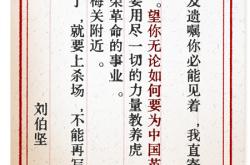 发遗嘱你必能见着，我直寄
。望你无论如何要为中国革
要用尽一切的力量教养虎
荣革命的事业。
梅关附近。
了，就要上杀场，不能再写
刘伯坚